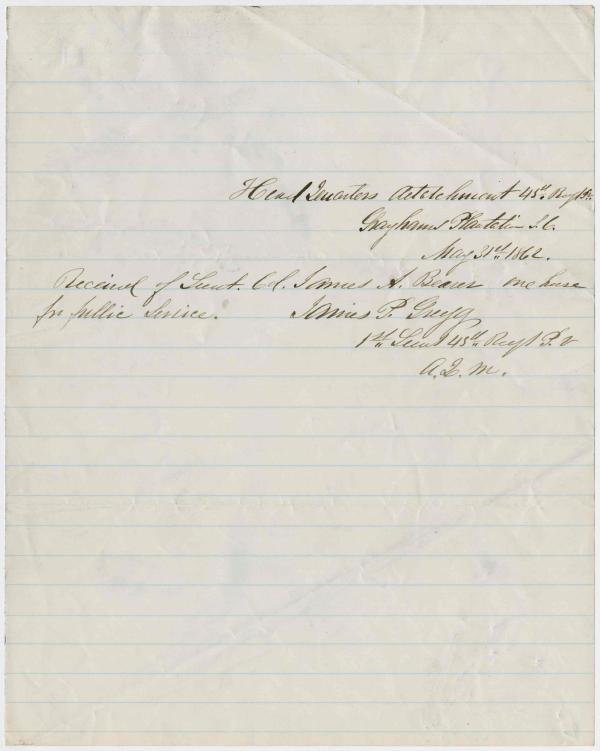 Head Quarters detatchment 45th. Regt Pv.
Grayhams Plantation S.C.
May 31st. 1862.
Received of Lieut. Col. James A. Beaver one horse
for public service. James P. Gregg
1st. Lieut 45th. Regt P. V
A. Q. M.